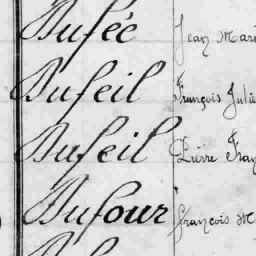 Dufée Jean Mari
Dufeil François Julie
Dufeil Pierre Fran
Dufour François M